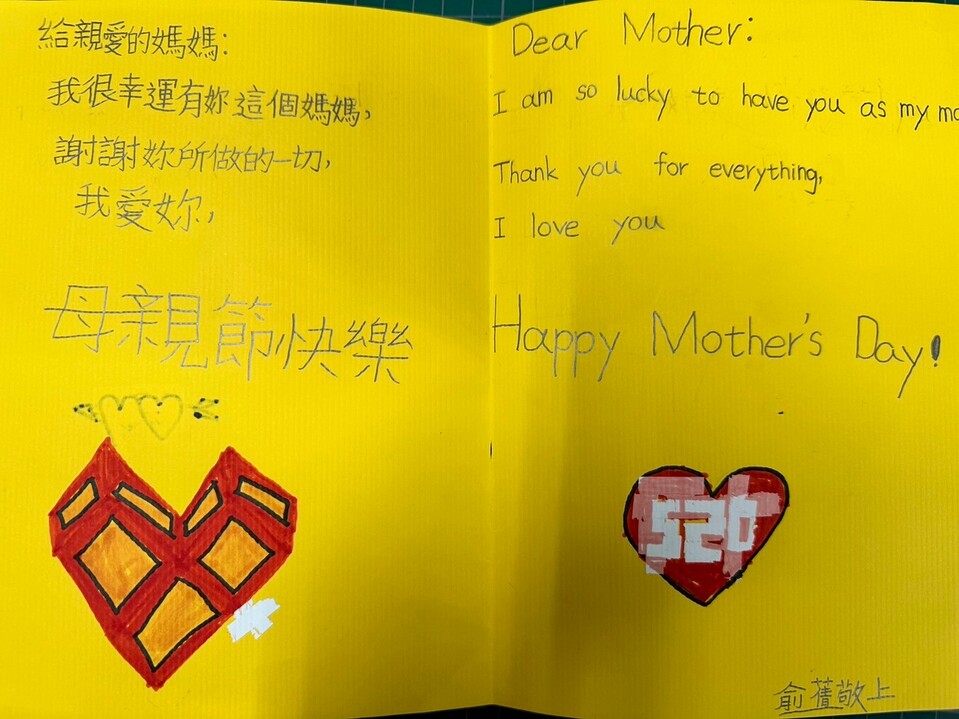 給親愛的媽媽:
我很幸運有妳這個媽媽,
謝謝妳所做的一切,
我愛妳,
母親節快樂
Dear Mother:
I am so lucky to have you as my
Thank you for everything,
I love you
Happy Mother's Day!
520
敬上